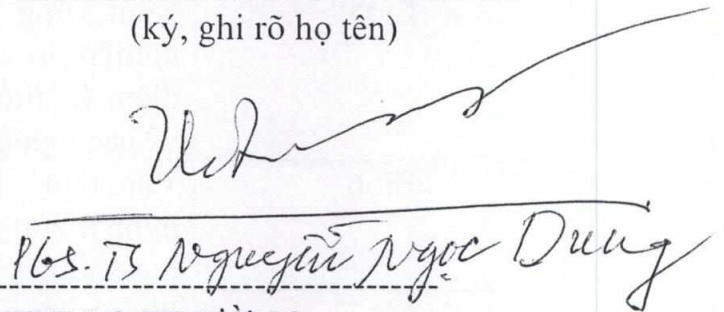 (ký, ghi rõ họ tên)
PGS. TS Nguyễn Ngọc Dung